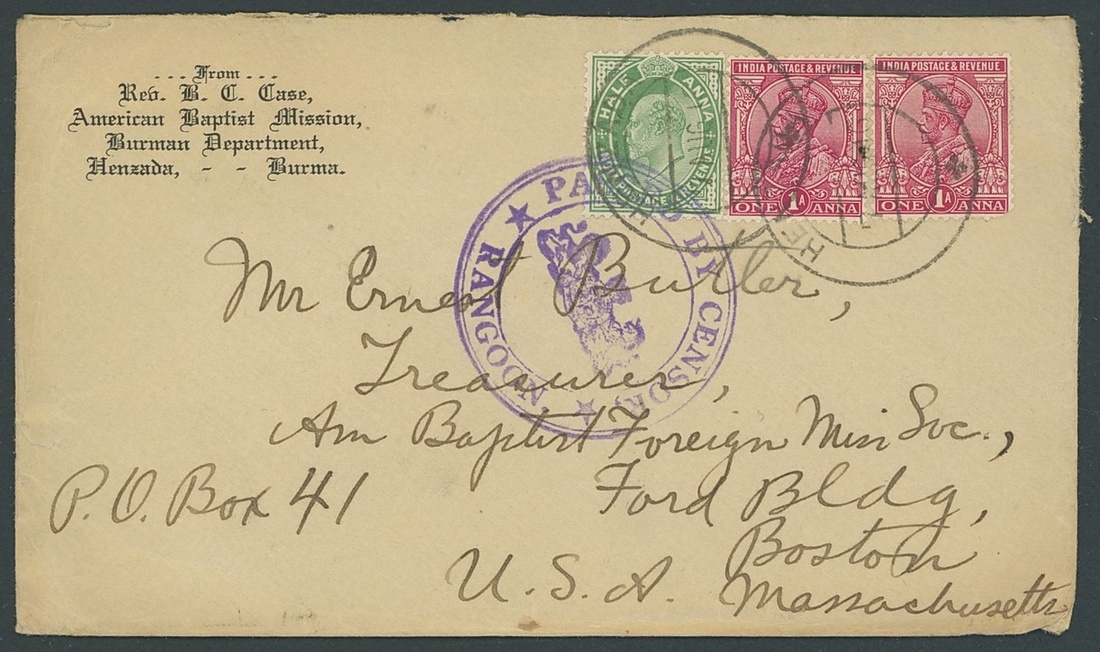 ... From ...
Rev. B. C. Case,
American Baptist Mission,
Burman Department,
Henzada, - - Burma.
HALF ANNA
INDIA POSTAGE & REVENUE
INDIA POSTAGE & REVENUE
ONE 1A ANNA
INDIA POSTAGE & REVENUE
ONE 1A ANNA
★ PASSED BY CENSOR, ★ RANGOON,
Mr Ernest Butler,
Treasurer,
Am Baptist Foreign Miss Soc.,
P.O. Box 41 Ford Bldg,
Boston
U.S.A. Massachusetts